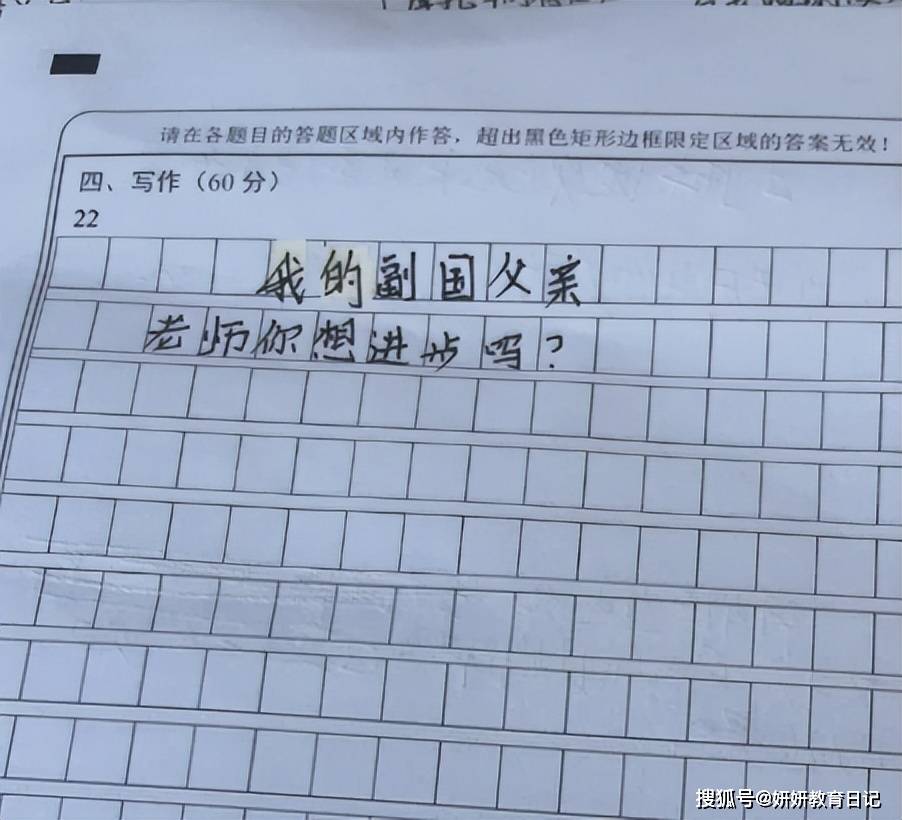 请在各题目的答题区域内作答，超出黑色矩形边框限定区域的答案无效！
四、写作（60 分）
22
我的副国父亲
老师你想进步吗？
搜狐号@妍妍教育日记